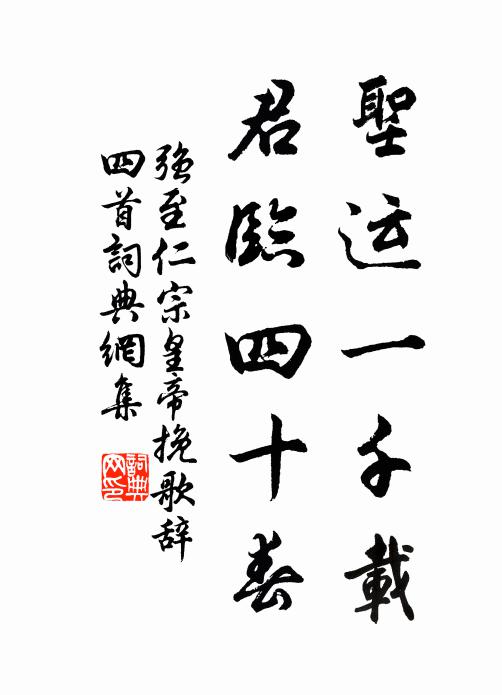 聖运一千載
君臨四十春
强至仁宗皇帝挽歌辞
四首詞典網集
詞典
网印